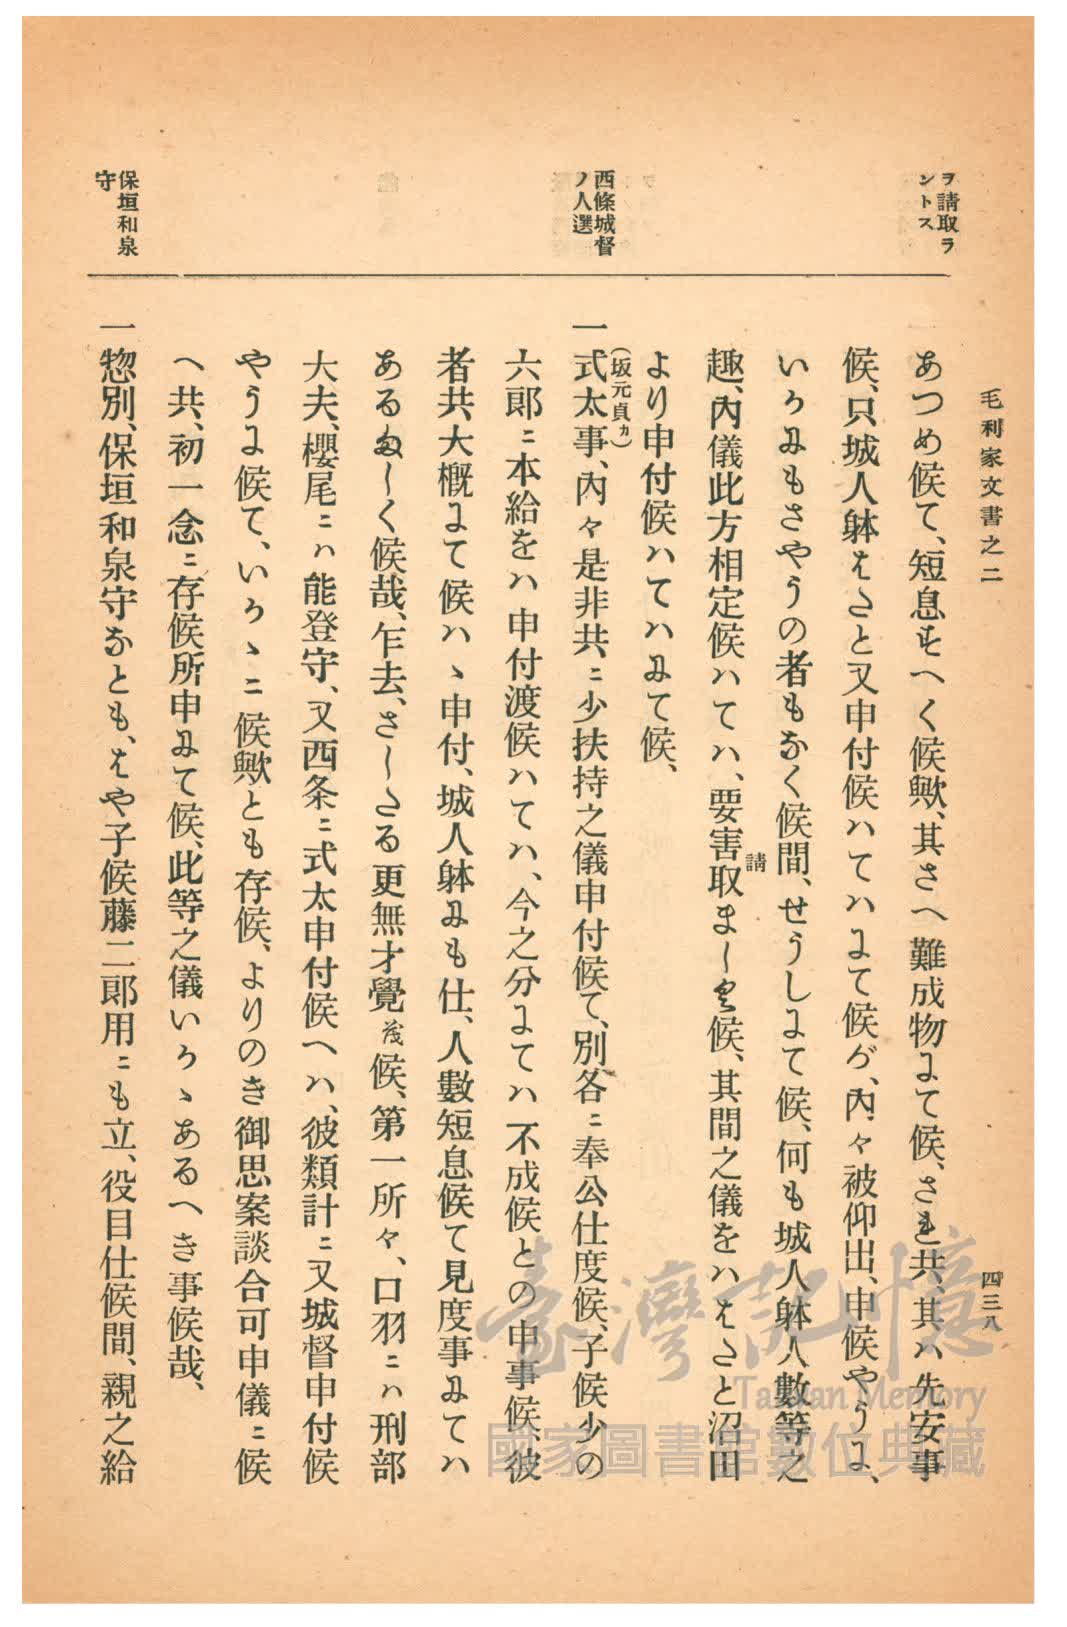 毛利家文書之二
四三八
ヲ請取ラ
ントス
あつめ候て、短息すへく候歟、其さへ難成物にて候、され共、其ハ先安事
候、只城人躰はたと又申付候ハてハにて候が、內々被仰出、申候やうに、
いかにもさやうの者もなく候間、せうしにて候、何も城人躰人數等之
趣、內儀此方相定候ハてハ、要害取ましき候、其間之儀をハはたと沼田
請
より申付候ハてハにて候、
西條城督
ノ人選
一式太事、內々是非共ニ少扶持之儀申付候て、別各ニ奉公仕度候、子候少の
(坂元貞カ)
六郞ニ本給をハ申付渡候ハてハ、今之分にてハ不成候との申事候、彼
者共、大概にて候ハヽ申付、城人躰にも仕、人數短息候て見度事にてハ
あるましく候哉、乍去、さしたる更無才覺茂候、第一所々、口羽ニハ刑部
大夫、櫻尾ニハ能登守、又西条ニ式太申付候ヘハ、彼類計ニ又城督申付候
やうに候て、いかヽニ候歟とも存候、よりのき御思案談合可申儀ニ候
ヘ共、初一念ニ存候所申にて候、此等之儀いかヽあるへき事候哉、
保垣和泉
守
一惣別、保垣和泉守なとも、はや子候藤二郞用ニも立、役目仕候間、親之給
臺灣記憶
Taiwan Memory
國家圖書館數位典藏